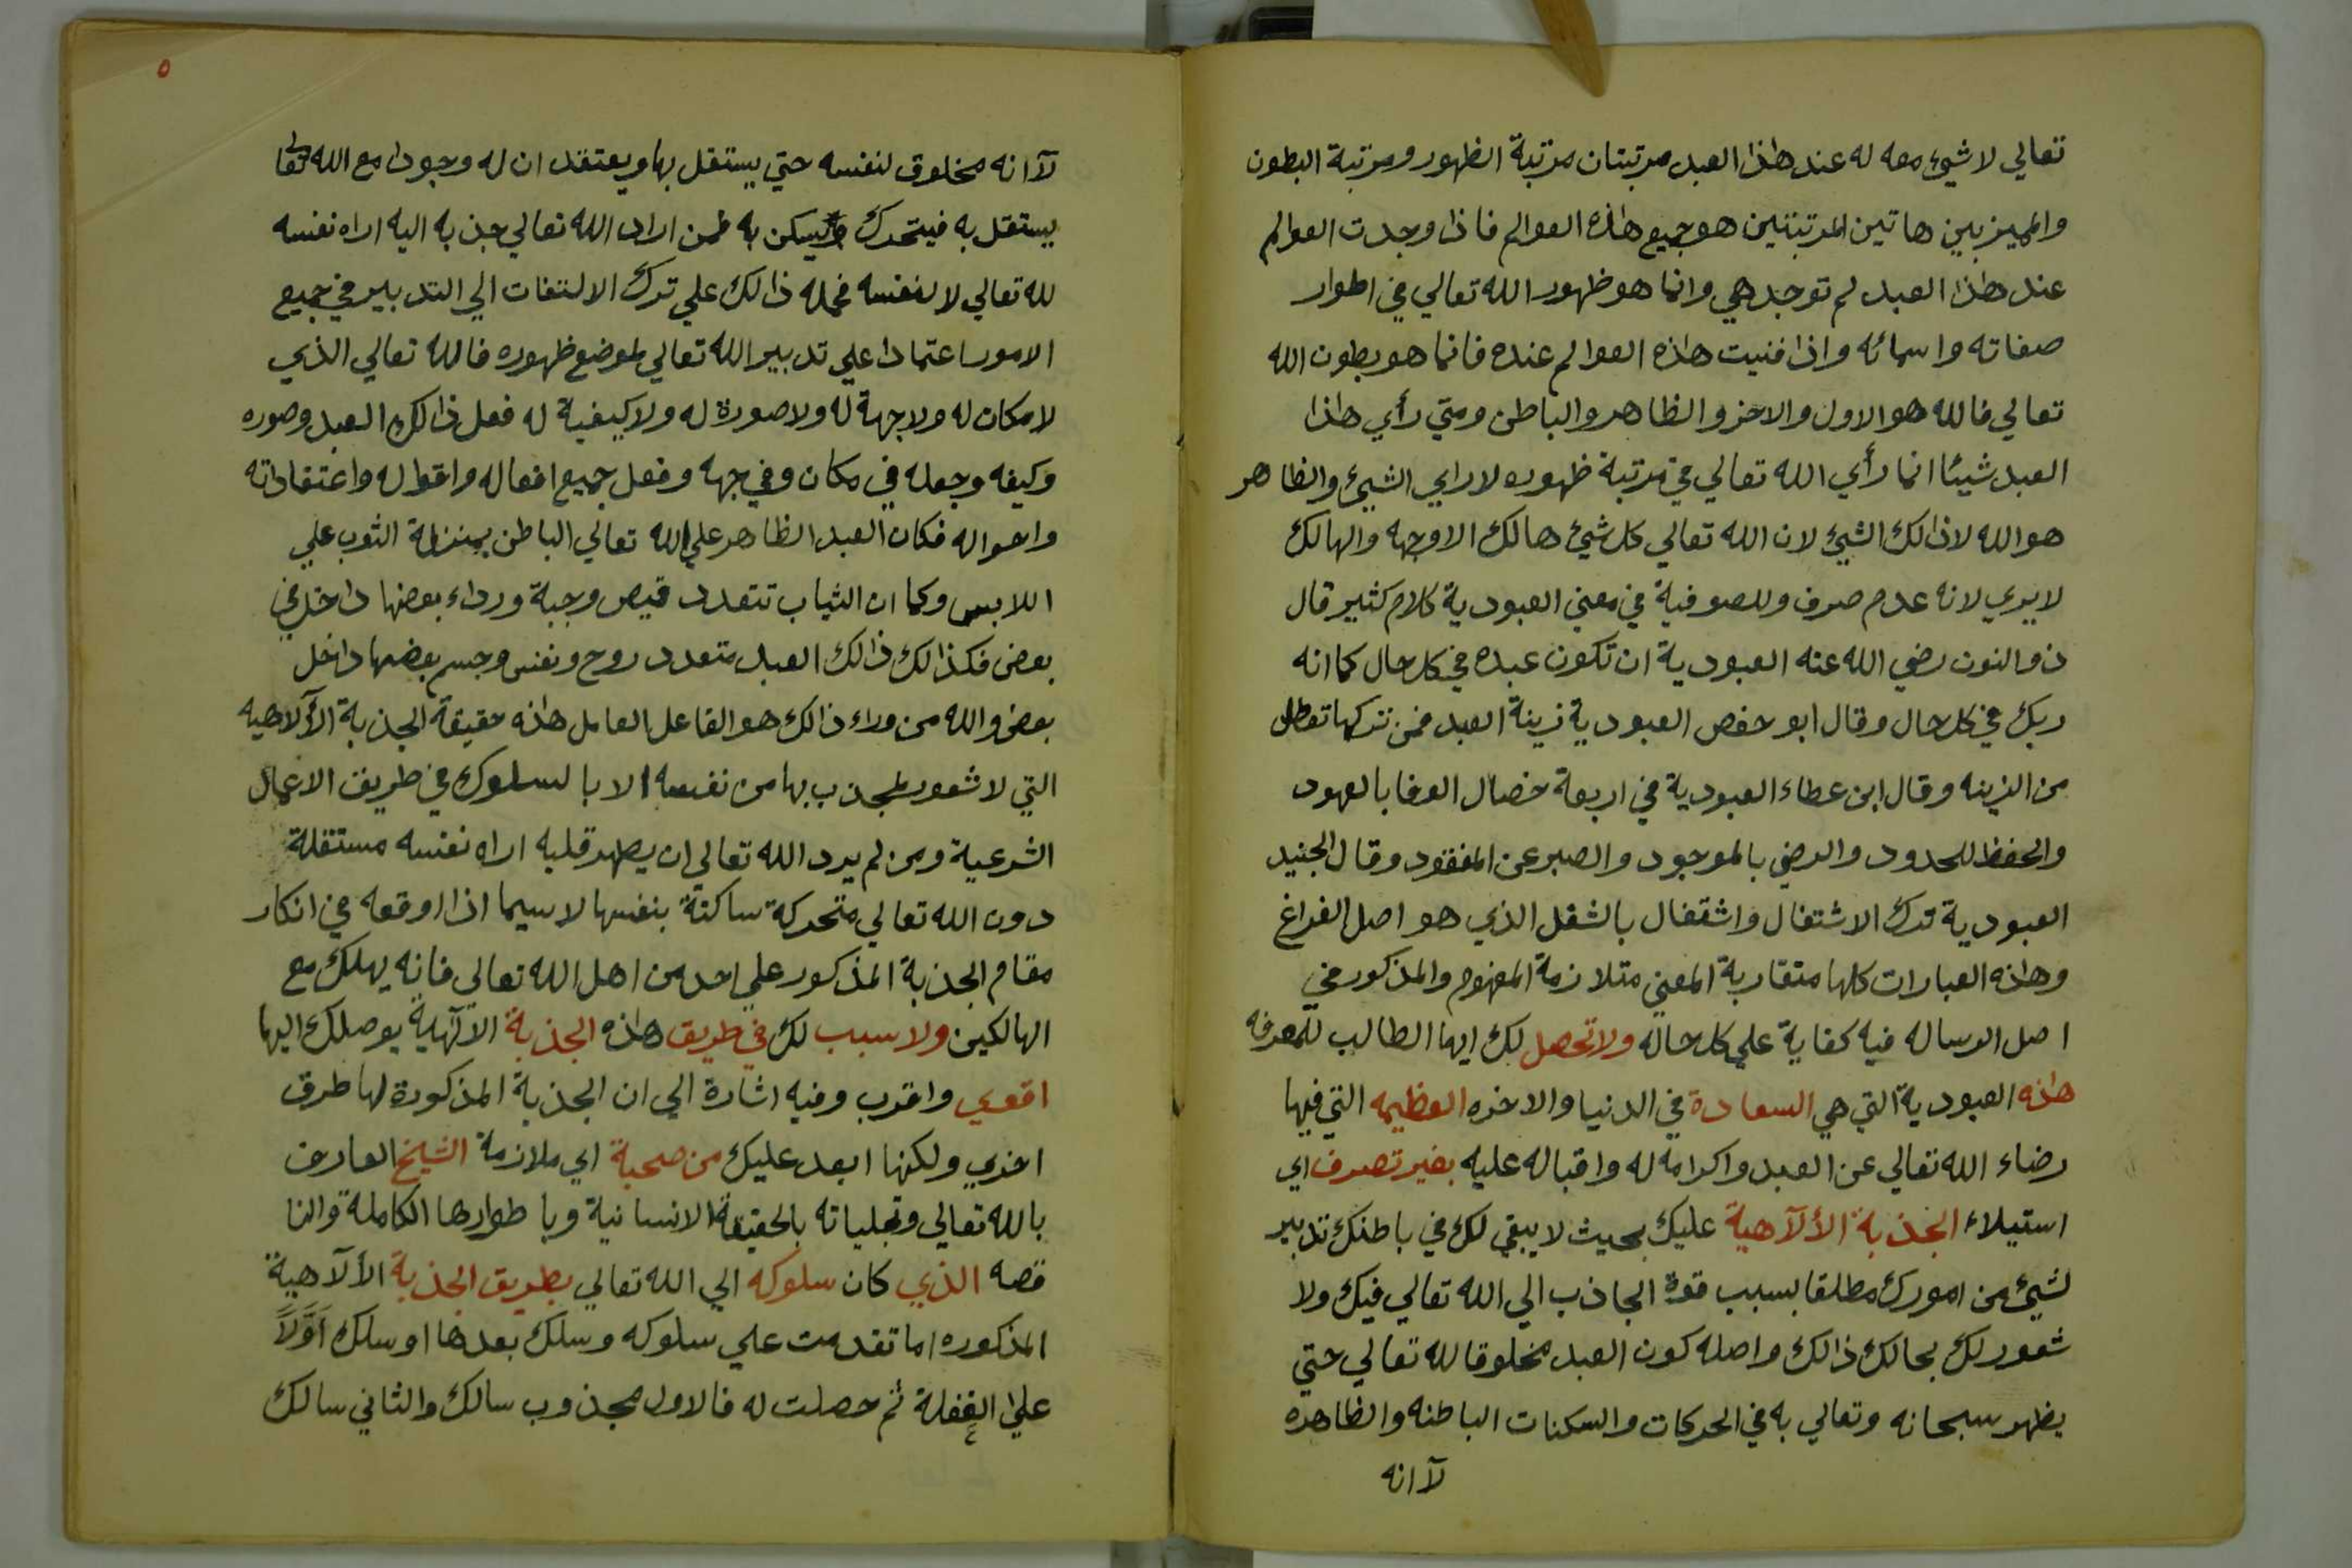 تعالي لا شيئ معه له عند هذا العبد مرتبتان مرتبة الظهور ومرتبة البطون
والمميز بين هاتين المرتبتين هو جميع هاذه العوالم فاذا وجدت العوالم
عند هاذا العبد لم توجد هي وانما هو ظهور الله تعالي في اطوار
صفاته واسمائه واذا فنيت هاذه العوالم عنده فانما هو بطون الله
تعالي فالله هو الاول والاخر والظاهر والباطن ومتي رأي هاذا
العبد شيئا انما رأي الله تعالي في مرتبة ظهوره لا راي الشيئ والظاهر
هو الله لا ذالك الشيئ لان الله تعالي كل شيئ هالك الا وجهه والهالك
لا يري لانه عدم صرف وللصوفية في معني العبودية كلام كثير قال
ذو النون رضي الله عنه العبودية ان تكون عبده في كل حال كما انه
ربك في كل حال وقال ابو حفص العبودية زينة العبد فمن تركها تعطل
من الزينه وقال ابن عطاء العبودية في اربعة خصال الوفا بالعهود
والحفظ للحدود والرضي بالموجود والصبر عن المفقود وقال الجنيد
العبودية ترك الاشتغال واشتغال بالشغل الذي هو اصل الفراغ
وهاذه العبارات كلها متقاربة المعني متلازمة المفهوم والمذكور في
اصل الرساله فيه كفاية علي كل حاله ولا تحصل لك ايها الطالب للمعرفه
هاذه العبودية التي هي السعادة في الدنيا والاخره العظيمه التي فيها
رضاء الله تعالي عن العبد واكرامه له واقباله عليه بغير تصرف اي
استيلاء الجذبة الألآهية عليك بحيث لا يبقي لك في باطنك تدبير
لشيئ من امورك مطلقا بسبب قوة الجاذب الي الله تعالي فيك ولا
شعور لك بحالك ذالك واصله كون العبد مخلوقا لله تعالي حتي
يظهر سبحانه وتعالي به في الحركات والسكنات الباطنه والظاهره
لآ انه
٥
لآ انه مخلوق لنفسه حتي يستقل بها ويعتقد ان له وجودا مع الله تعالي
يستقل به فيتحرك ويسكن به فمن اراد الله تعالي جذبه اليه اراه نفسه
لله تعالي لا لنفسه فحمله ذالك علي ترك الالتفات الي التدبير في جميع
الامور اعتمادا علي تدبير الله تعالي لموضع ظهوره فالله تعالي الذي
لا مكان له ولا جهة له ولا صورة له ولا كيفية له فعل ذالك العبد وصوره
وكيفه وجعله في مكان وفي جهه وفعل جميع افعاله واقواله واعتقاداته
واحواله فكان العبد الظاهر علي الله تعالي الباطن بمنزلة الثوب علي
اللابس وكما ان الثياب تتعدد قميص وجبة ورداء بعضها داخل في
بعض فكذالك ذالك العبد متعدد روح ونفس وجسم بعضها داخل
بعض والله من وراء ذالك هو الفاعل العامل هاذه حقيقة الجذبة الألآهيه
التي لا شعور لمجذوب بها من نفسه الا بالسلوك في طريق الاعمال
الشرعية ومن لم يرد الله تعالي ان يطهر قلبه اراه نفسه مستقلة
دون الله تعالي متحركة ساكنة بنفسها لا سيما اذا اوقعه في انكار
مقام الجذبة المذكور علي احد من اهل الله تعالي فانه يهلك مع
الهالكين ولا سبب لك في طريق هاذه الجذبة الآلهية يوصلك اليها
اقوي واقرب وفيه اشارة الي ان الجذبة المذكورة لها طرق
اخري ولكنها ابعد عليك من صحبة اي ملازمة الشيخ العارف
بالله تعالي وتجلياته بالحقيقة الانسانية وباطوارها الكاملة والنا
قصه الذي كان سلوكه الي الله تعالي بطريق الجذبة الألآهية
المذكوره اما تقدمت علي سلوكه وسلك بعدها او سلك اولا
علي الغفلة ثم حصلت له فالاول مجذوب سالك والثاني سالك